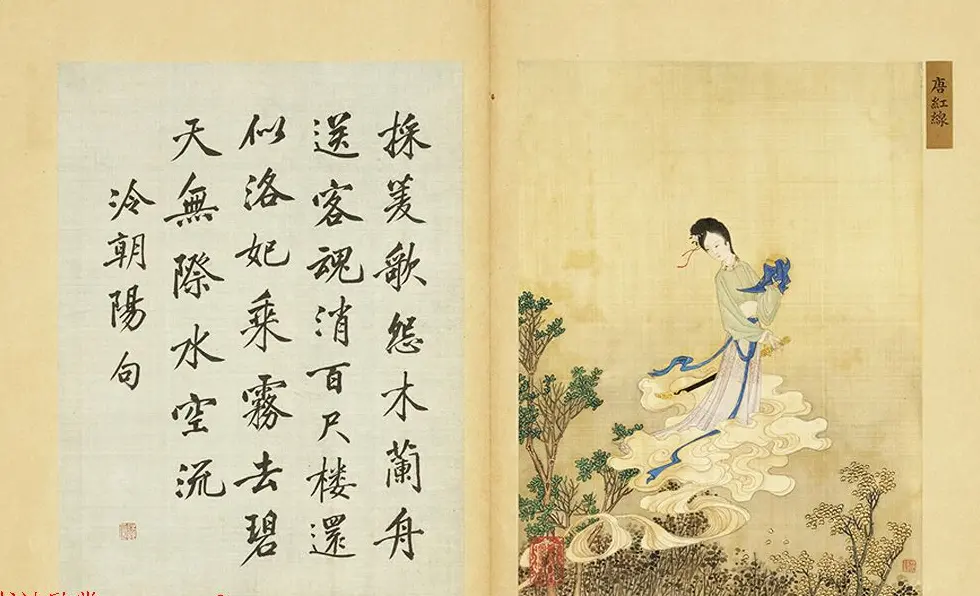 唐紅線
採菱歌怨木蘭舟
送客魂消百尺楼還
似洛妃乘霧去碧
天無際水空流
泠朝陽句